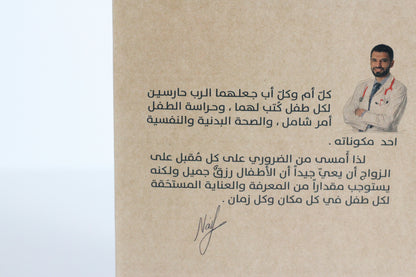 كلّ أم وكلّ أب جعلهما الرب حارسين
لكل طفل كُتب لهما ، وحراسة الطفل
أمر شامل ، والصحة البدنية والنفسية
احد مكوناته .
لذا أمسى من الضروري على كل مُقبل على
الزواج أن يعيَ جيداً أن الأطفال رزقٌ جميل ولكنه
يستوجب مقداراً من المعرفة والعناية المستحَقة
لكل طفل في كل مكان وكل زمان .
Naif